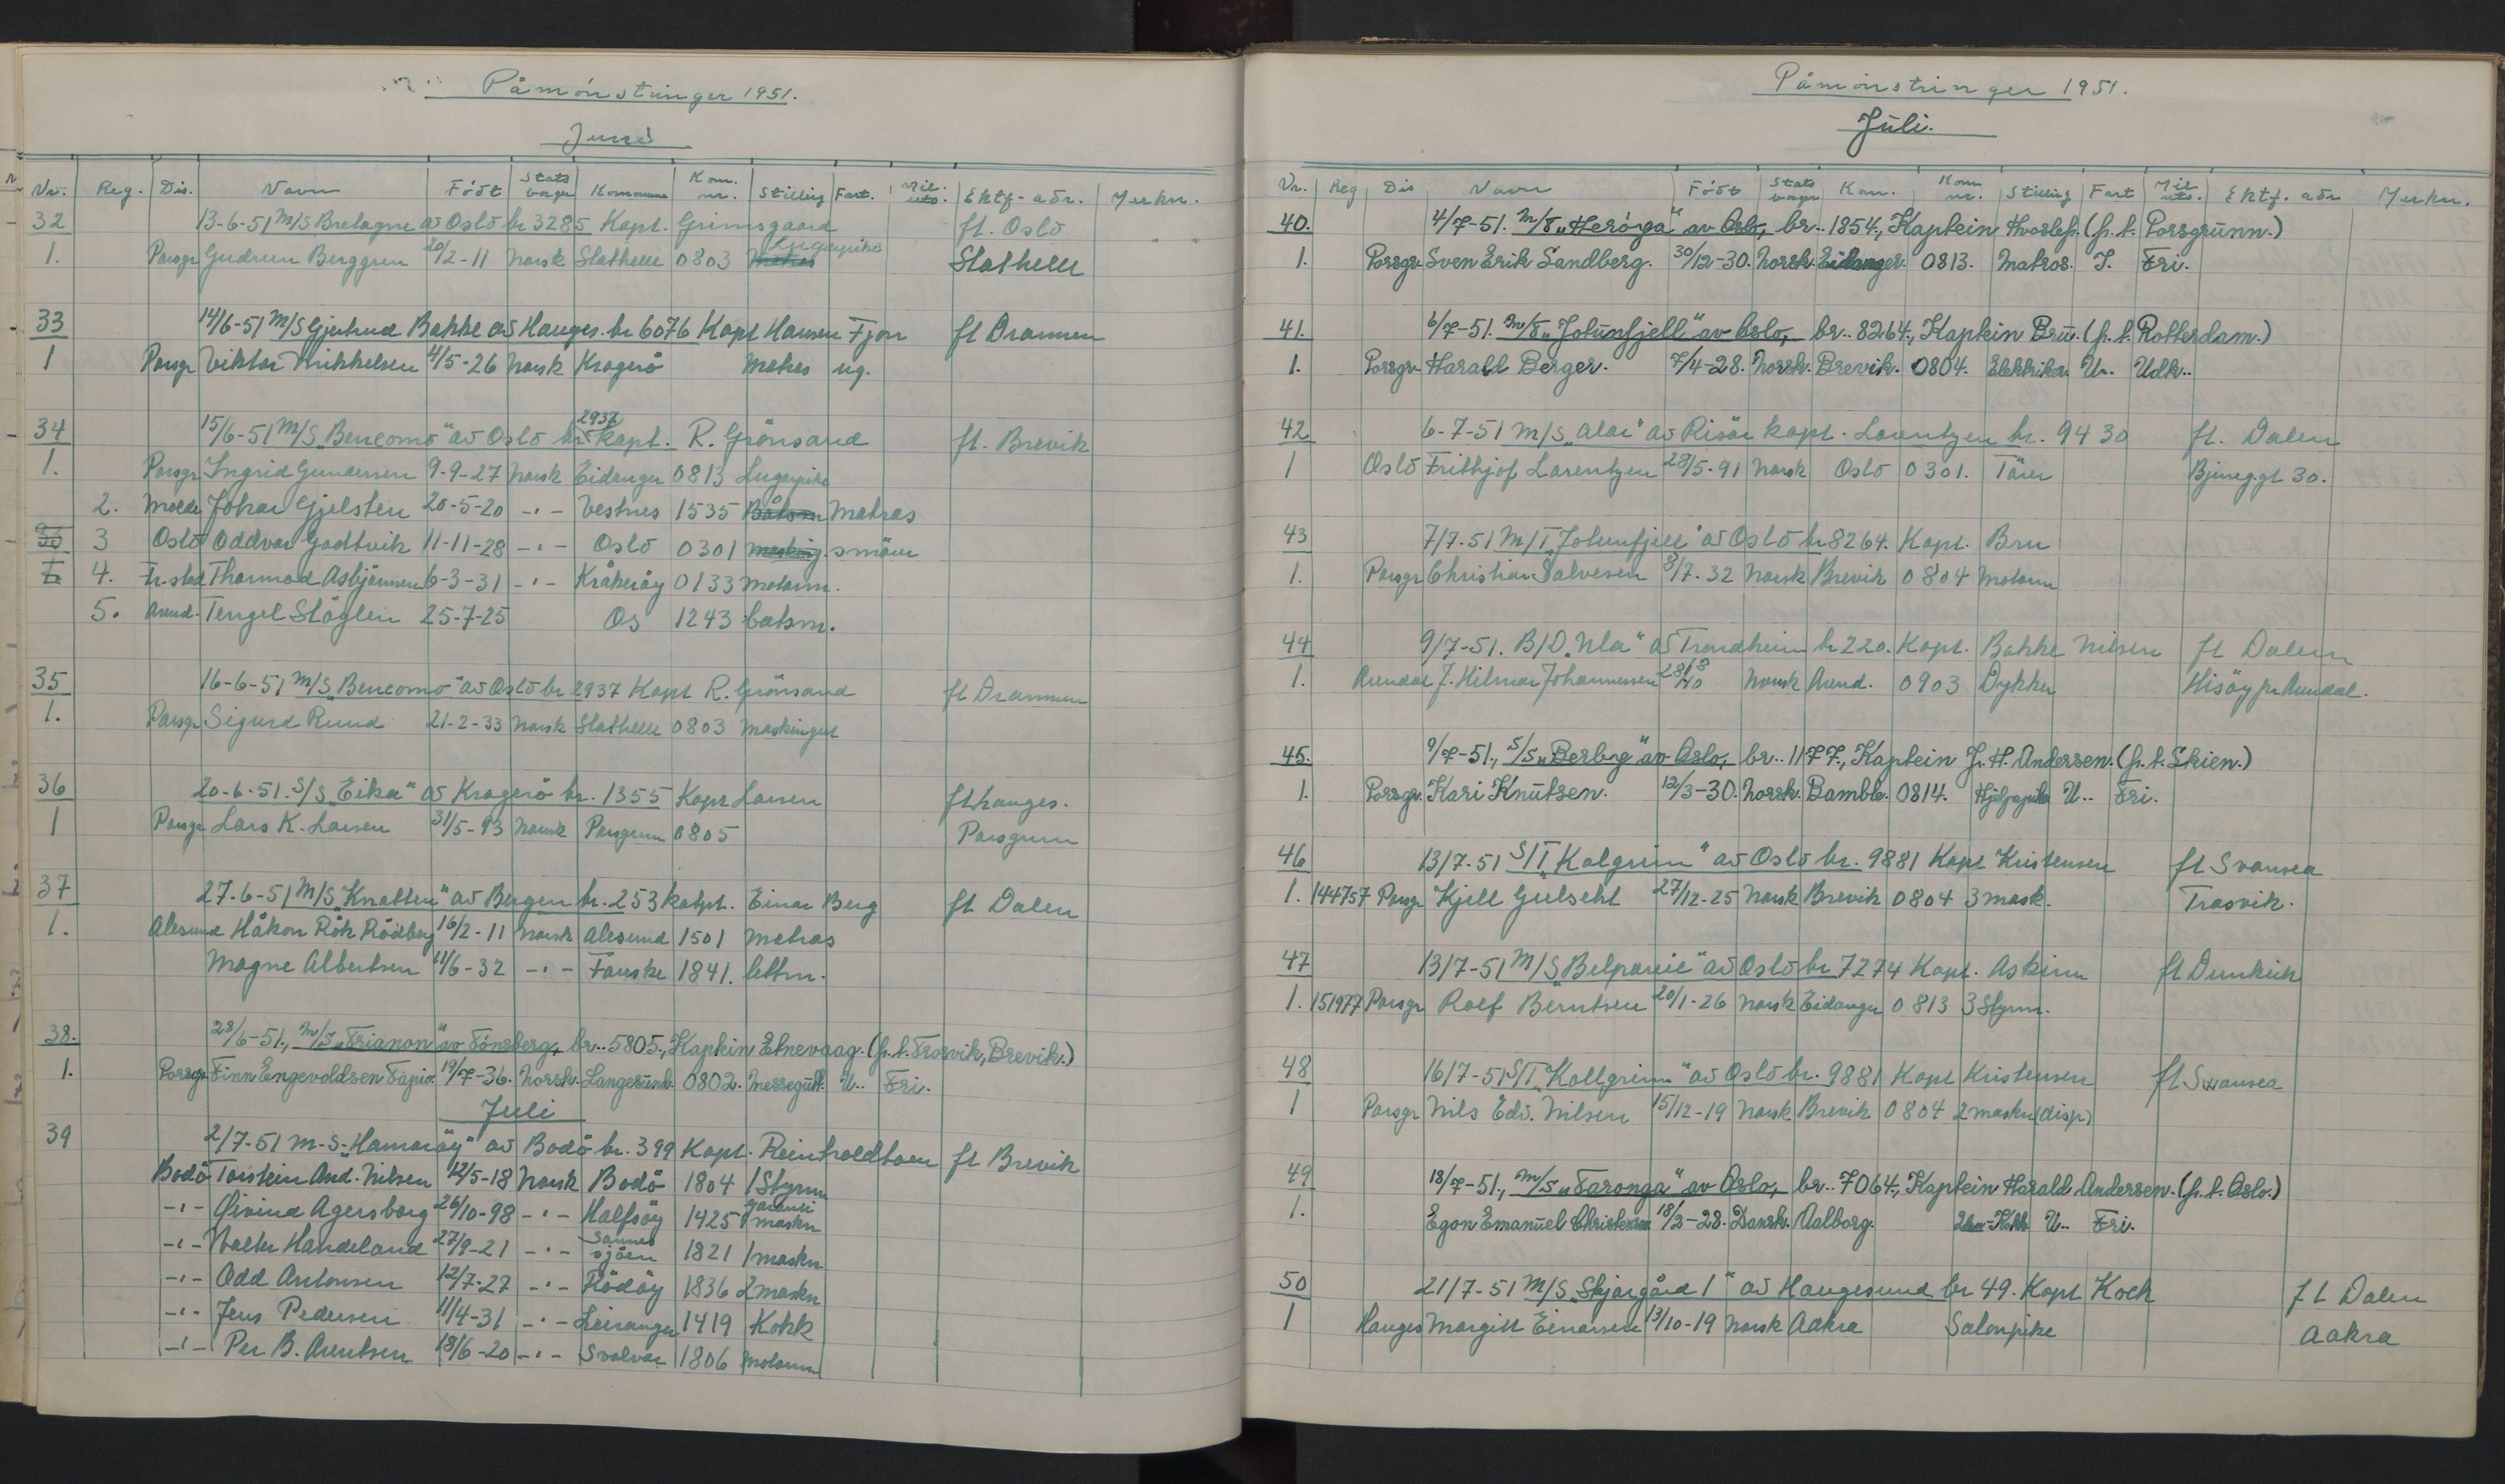 Påmönstringer 1951.
Juni
Nr. Reg. Dis. Navn Födt Stats borger Kommune Kom. nr. Stilling Fart. Mil. uts. Ektf-adr. Merkn.
32 13-6-51 M/S Bretagne av Oslo br 3285 Kapt. Grimsgaard ft. Oslo
1. Porsgr Gudrun Berggren 20/2-11 Norsk Stathelle 0803 Matros Lugarpike Stathelle
33 14/6-51 M/S Gjertrud Bakke av Hauges. br 6076 Kapt Hansen Fjon ft Drammen
1 Porsgr Viktor Mikkelsen 4/5-26 Norsk Kragerö Matros ug.
34 15/6-51 M/S „Bencomo" av Oslo br 2937 Kapt. R. Grönsand ft. Brevik
1. Porsgr Ingrid Gundersen 9-9-27 Norsk Eidanger 0813 Lugarpike
2. Molde Johar Gjelsten 20-5-20 -"- Vestnes 1535 Båtsm Matros
35 3 Oslo Oddvar Godtvik 11-11-28 -"- Oslo 0301 masking. smörer
1. 4. Fr-stad Thormod Asbjörnsen 6-3-31 -"- Kråkeröy 0133 Motorm.
5. Arend. Tengel Slöglen 25-7-25 Os 1243 båtsm.
35 16-6-51 M/S „Bencomo" av Oslo br 2937 Kapt R. Grönsand ft Drammen
1. Porsgr Sigurd Ruud 21-2-33 Norsk Stathelle 0803 Maskingut
36 20-6-51. S/S „Eika" av Kragerö br. 1355 Kapt Larsen ft Langes.
1 Porsgr Lars K. Larsen 31/5-93 Norsk Porsgrunn 0805 Porsgrunn
37 27-6-51 M/S „Knatten" av Bergen br. 253 kapt. Einar Berg ft Dalen
1. Ålesund Håkon Röh Rödberg 16/2-11 Norsk Ålesund 1501 Matros
Magne Albertsen 11/6-32 -"- Fauske 1841. lettm.
38. 28/6-51., M/S „Trianon" av Tönsberg, br.. 5805., Kaptein Etnevaag. (p.t. Trosvik, Brevik.)
1. Porsgr. Finn Engevoldsen Tapio. 19/7-36. Norsk. Langesund. 0802. Messegutt. U.. Fri.
Juli
39 2/7-51 M-S- „Hamaröy" av Bodö br. 399 Kapt. Reinholdtsen ft Brevik
Bodö Torstein And. Nilsen 12/5-18 Norsk Bodö 1804 1 Styrm
-"- Øivind Agersborg 26/10-98 -"- Halfsöy 1425 garanti maskn
-"- Walter Handeland 27/9-21 -"- Sannes sjöen 1821 1 maskn
-"- Odd Antonsen 12/7-27 -"- Rödöy 1836 2 maskn
-"- Jens Pedersen 11/4-31 -"- Leiranger 1419 Kokk
-"- Per B. Arentsen 18/6-20 -"- Svolvær 1806 Motorm
Påmönstringer 1951.
Juli.
Nr. Reg Dis Navn Födt Stats borger Kom. Kom nr. Stilling Fart Mil. uts. Ektf. adr Merkn.
40. 4/7-51. M/S „Heröya" av Oslo, br.. 1854., Kaptein Hvoslef. (p.t. Porsgrunn.)
1. Porsgr. Sven Erik Sandberg. 30/12-30. Norsk. Eidanger. 0813. Matros. I. Fri.
41. 6/7-51. M/S „Jotunfjell" av Oslo, br.. 8264., Kaptein Bru. (p.t. Rotterdam.)
1. Porsgr. Harald Berger. 7/4-28. Norsk. Brevik. 0804. Elektriker. U.. Udk..
42 6-7-51 M/S „Alar" av Risör kapt. Lorentzen br. 9430 ft. Dalen
1 Oslo Frithjof Lorentzen 28/5-91 Norsk Oslo 0301. Förer Bjerreg.gt 30.
43 7/7-51 M/T „Jotunfjell" av Oslo br 8264. Kapt. Bru
1. Porsgr Christian Salvesen 8/7-32 Norsk Brevik 0804 Motorm
44 9/7-51. B/D „Ula" av Trondheim br 220. Kapt. Bakke Nilsen ft Dalen
1. Arendal J. Hilmar Johannessen 28/8 10 Norsk Arend. 0903 Dykker Hisöy pr Arendal.
45. 9/7-51., S/S „Borborg" av Oslo, br.. 1177., Kaptein J. H. Andersen. (p.t. Skien.)
1. Porsgr. Kari Knutsen. 12/3-30. Norsk. Bamble. 0814. Hjelpepike U.. Fri.
46 13/7-51 S/T „Kolgrim" av Oslo br. 9881 Kapt Kristensen ft Svansea
1. 144757 Porsgr Kjell Gulseht 27/12-25 Norsk Brevik 0804 3 mask. Trosvik.
47 13/7-51 M/S „Belpareil" av Oslo br 7274 Kapt. Askinn ft Dunkirk
1. 151977 Porsgr Rolf Berntsen 20/1-26 Norsk Eidanger 0813 3 Styrm.
48 16/7-51 S/T „Kollgrim" av Oslo br. 9881 Kapt Kristensen ft Swansea
1 Porsgr Nils Edv. Nilsen 15/12-19 Norsk Brevik 0804 2 maskn (disp)
49 18/7-51., M/S „Taronga" av Oslo, br.. 7064., Kaptein Harald Andersen. (p.t. Oslo.)
1. Egon Emanuel Christensen 18/2-28. Dansk. Aalborg. 2den-Kokk U.. Fri.
50 21/7-51 M/S „Skjærgård 1" av Haugesund br 49. Kapt Koch ft Dalen
1 Hauges Margitt Einarsen 13/10-19 Norsk Aakra Salonpike Aakra